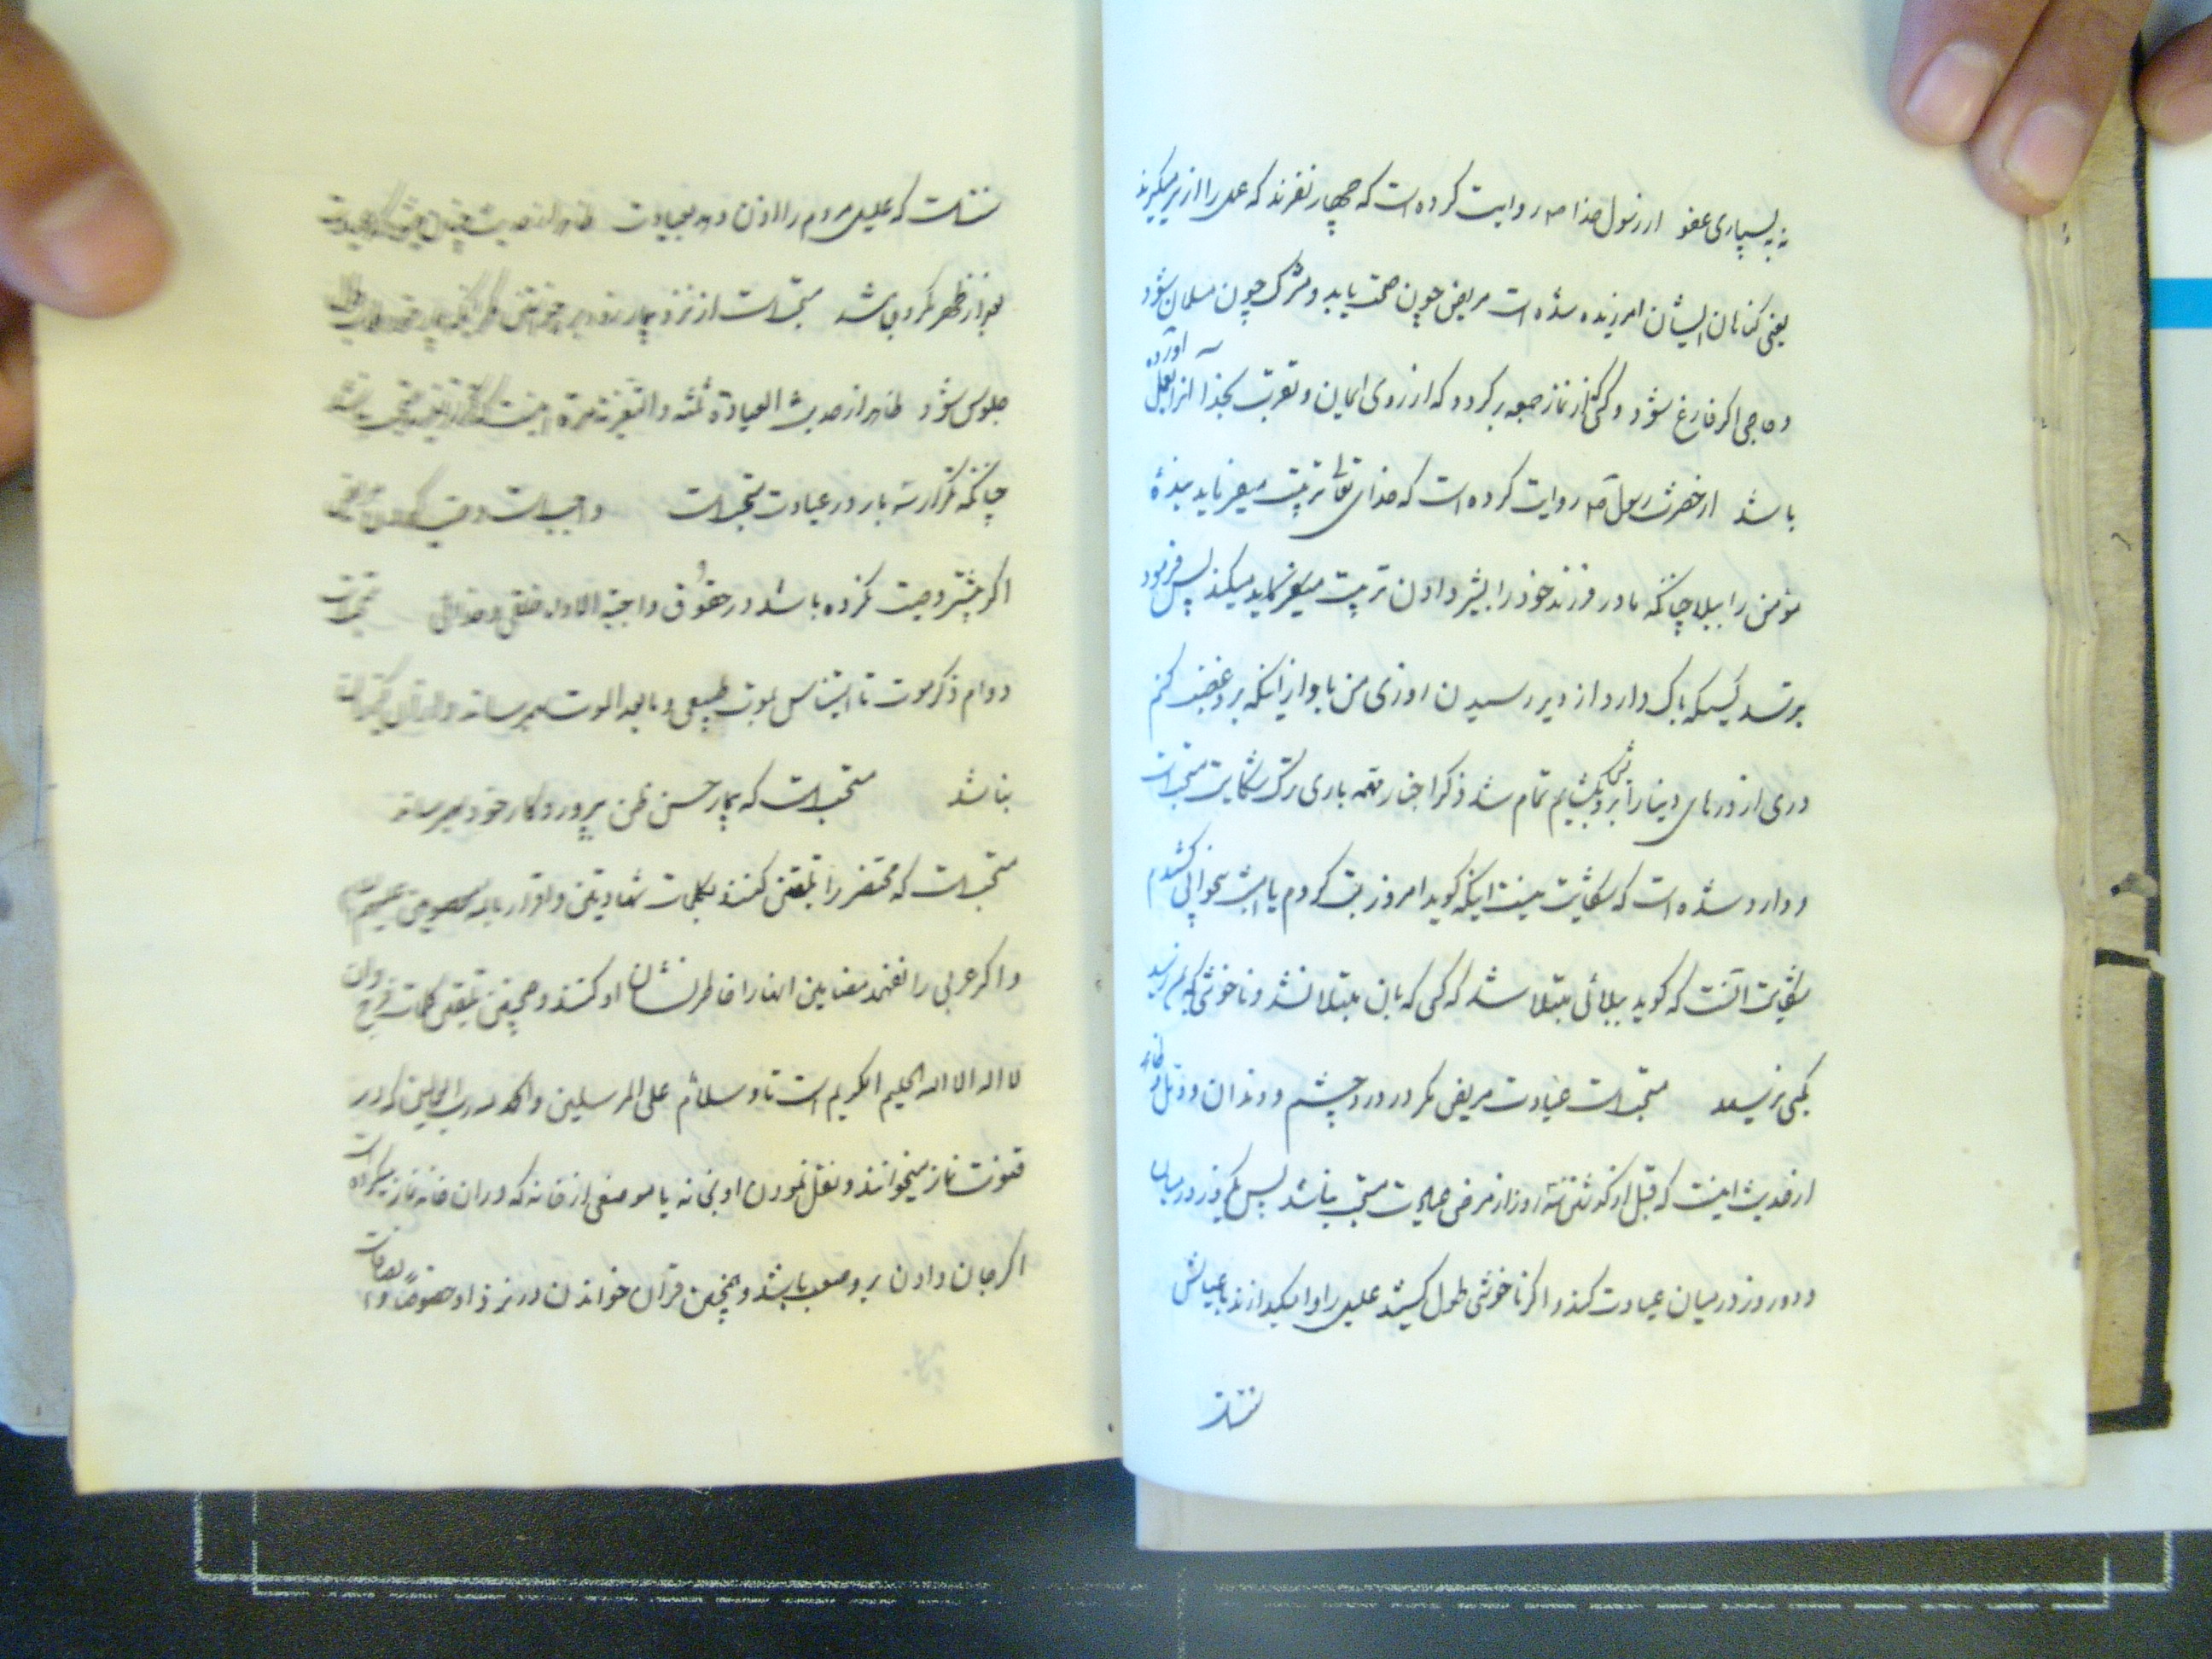 نه بسیاری عفو از رسول خدا صم روایت کرده است که چهار نفرند که عمل را از سر میگیرند
یعنی گناهان ایشان امرزیده شده است مریض چون صحت یابد و مشرک چون مسلمان شود
و حاجی اکر فارغ شود و کسی که از نماز جمعه برکردد که از روی ایمان و تقرب بخدا آنرا بعمل آورده
باشد از حضرت رسول صم روایت کرده است که خدای تعالی تربیت میفرماید بندهٔ
مؤمن را ببلا چنانکه مادر فرزند خود را بشیر دادن تربیت میکند پس فرمود
بترسد کسیکه باک دارد از دیر رسیدن روزی من باو از آنکه برو غضب کنم
دری از درهای دنیا را برو بکشایم تمام شد ذکر اخبار ترک شکایت مستحبست
و وارد شده است که شکایت نیست اینکه کوید امروز تب کردم یا امشب بیخوابی کشیدم
شکایت آنست که کوید ببلائی مبتلا شدم که کسی که بان مبتلا نشد و ناخوشی بمن رسید
بکسی نرسید مستحبست عیادت مریض مکر در درد چشم و دندان و دمل و ظاهر
از حدیث اینست که قبل از کذشتن سه روز از مرض عیادت مستحب نباشد پس یکروز در میان
و دو روز در میان عیادت کند و اکر ناخوشی طول کشید علیل را وامیکذارند با عیالش
سنتست
سنتست که علیل مردم را اذن دهد بعیادت ظاهر از حدیث
بعد از ظهر مکروه باشد مستحبست از نزد بیمار زود برخواستن مکر آنکه بیمار خود طالب
جلوس شود ظاهر از حدیث العیادة ثلثه و التعزیة مرة اینست که تکرار تعزیه مستحب نباشد
چنانکه تکرار سه بار در عیادت مستحبست واجبست وصیت کردن مریض
اکر پیشتر وصیت نکرده باشد در حقوق واجبة الادا خلقی و خدائی مستحبست
دوام ذکر موت تا استیناس بموت طبیعی و ما بعد الموت بهم رساند و از آن
نباشد مستحبست که بیمار حسن ظن بپروردکار خود بهم رساند
مستحبست که محتضر را تلقین کنند بکلمات شهادتین و اقرار بائمه معصومین علیهم السلام
و اکر عربی را نفهمد مضامین انها را خاطر نشان او کنند و همچنین تلقین کلمات فرج و ان
لا اله الا الله الحلیم الکریم است تا و سلام علی المرسلین و الحمد لله رب العالمین که در
قنوت نماز میخوانند و نقل نمودن او بخانه یا موضعی از خانه که در ان خانه نماز میکرده است
اکر جان دادن برو صعب باشد و همچنین قرآن خواندن در نزد او خصوصاً و الصافات